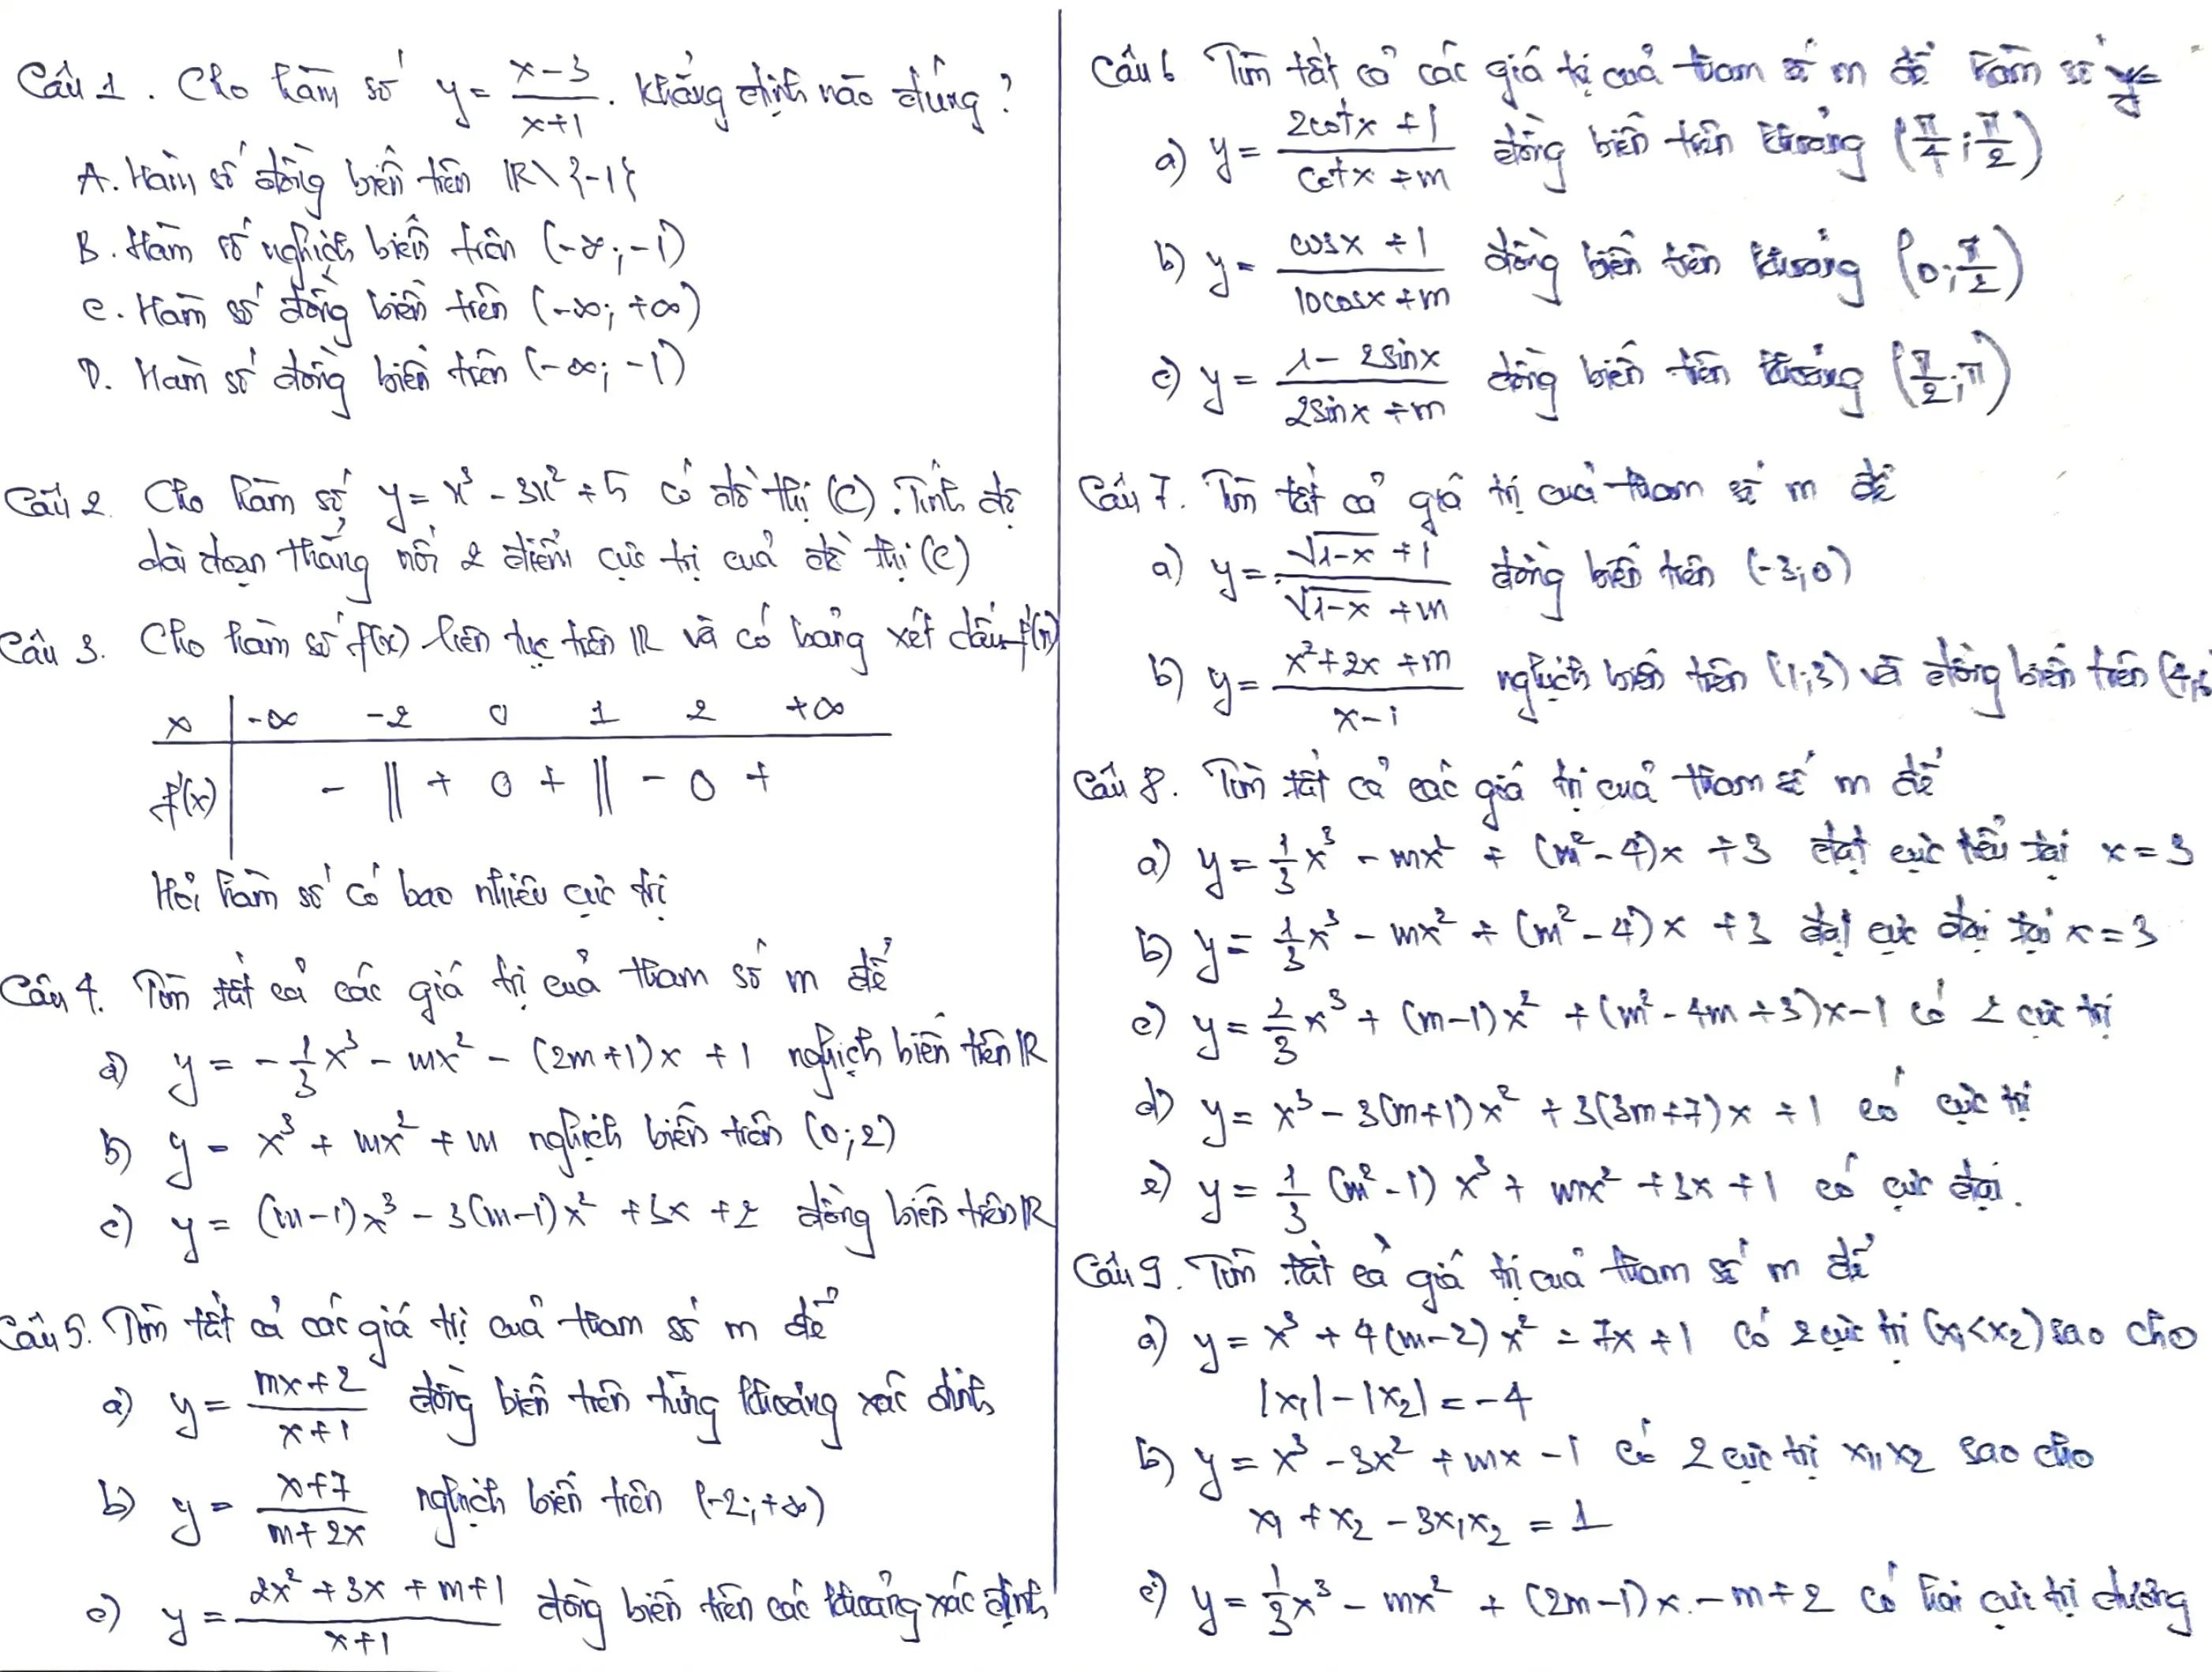 Câu 1. Cho hàm số y = (x-3)/(x+1). Khẳng định nào đúng?
A. Hàm số đồng biến trên ℝ\{-1}
B. Hàm số nghịch biến trên (-∞; -1)
C. Hàm số đồng biến trên (-∞; +∞)
D. Hàm số đồng biến trên (-∞; -1)
Câu 2. Cho hàm số y = x³ - 3x² + 5 có đồ thị (C). Tính độ
dài đoạn thẳng nối 2 điểm cực trị của đồ thị (C)
Câu 3. Cho hàm số f(x) liên tục trên ℝ và có bảng xét dấu f'(x)
x | -∞ -2 0 1 2 +∞
f'(x) | - || + 0 + || - 0 +
Hỏi hàm số có bao nhiêu cực trị
Câu 4. Tìm tất cả các giá trị của tham số m để
a) y = -1/3 x³ - mx² - (2m+1)x + 1 nghịch biến trên ℝ
b) y = x³ + mx² + m nghịch biến trên (0; 2)
c) y = (m-1)x³ - 3(m-1)x² + 3x + 2 đồng biến trên ℝ
Câu 5. Tìm tất cả các giá trị của tham số m để
a) y = (mx+2)/(x+1) đồng biến trên từng khoảng xác định
b) y = (x+7)/(m+2x) nghịch biến trên (-2; +∞)
c) y = (2x² + 3x + m+1)/(x+1) đồng biến trên các khoảng xác định
Câu 6 Tìm tất cả các giá trị của tham số m để hàm số
a) y = (2cotx + 1)/(cotx + m) đồng biến trên khoảng (π/4; π/2)
b) y = (cosx + 1)/(10cosx + m) đồng biến trên khoảng (0; π/2)
c) y = (1 - 2sinx)/(2sinx + m) đồng biến trên khoảng (π/2; π)
Câu 7. Tìm tất cả giá trị của tham số m để
a) y = (√(1-x) + 1)/(√(1-x) + m) đồng biến trên (-3; 0)
b) y = (x² + 2x + m)/(x-1) nghịch biến trên (1; 3) và đồng biến trên (4;
Câu 8. Tìm tất cả các giá trị của tham số m để
a) y = 1/3 x³ - mx² + (m² - 4)x + 3 đạt cực tiểu tại x = 3
b) y = 1/3 x³ - mx² + (m² - 4)x + 3 đạt cực đại tại x = 3
c) y = 2/3 x³ + (m-1)x² + (m² - 4m + 3)x - 1 có 2 cực trị
d) y = x³ - 3(m+1)x² + 3(3m+7)x + 1 có cực trị
e) y = 1/3 (m² - 1) x³ + mx² + 3x + 1 có cực đại.
Câu 9. Tìm tất cả giá trị của tham số m để
a) y = x³ + 4(m-2)x² - 7x + 1 có 2 cực trị (x₁<x₂) sao cho
|x₁| - |x₂| = -4
b) y = x³ - 3x² + mx - 1 có 2 cực trị x₁, x₂ sao cho
x₁ + x₂ - 3x₁x₂ = 1
c) y = 1/3 x³ - mx² + (2m-1)x - m + 2 có hai cực trị dương